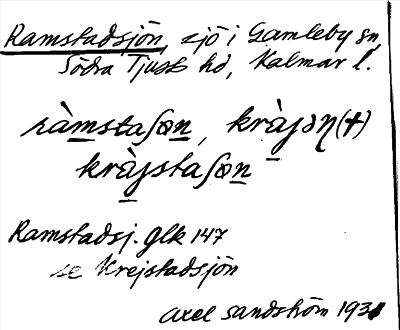 Ramstadsjön, sjö i Gamleby sn,
Södra Tjust hd, Kalmar l.
ràmstaʃøn, kràjøn(+)
kràjstaʃøn
Ramstadsj. Glk 147
se Krejstadsjön
Axel Sandström 1931